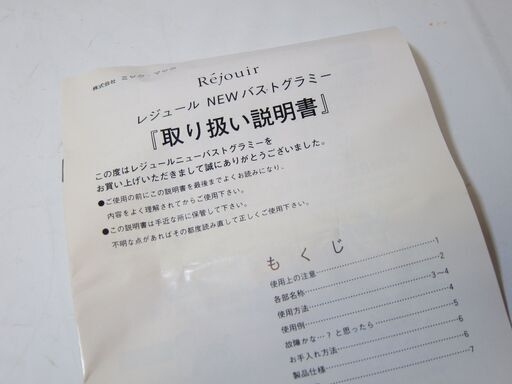 株式会社
Réjouir
レジュール NEWバストグラミー
『取り扱い説明書』
この度はレジュールニューバストグラミーを
お買い上げいただきまして誠にありがとうございました。
●ご使用の前にこの説明書を最後までよくお読みになり、
内容をよく理解されてからご使用下さい。
●この説明書は手近な所に保管して下さい。
不明な点があればその都度読み直して正しくご使用下さい。
もくじ
使用上の注意…………1
各部名称…………2
使用方法…………3〜4
使用例…………4
故障かな…？と思ったら…………5
お手入れ方法…………6
製品仕様…………6
7